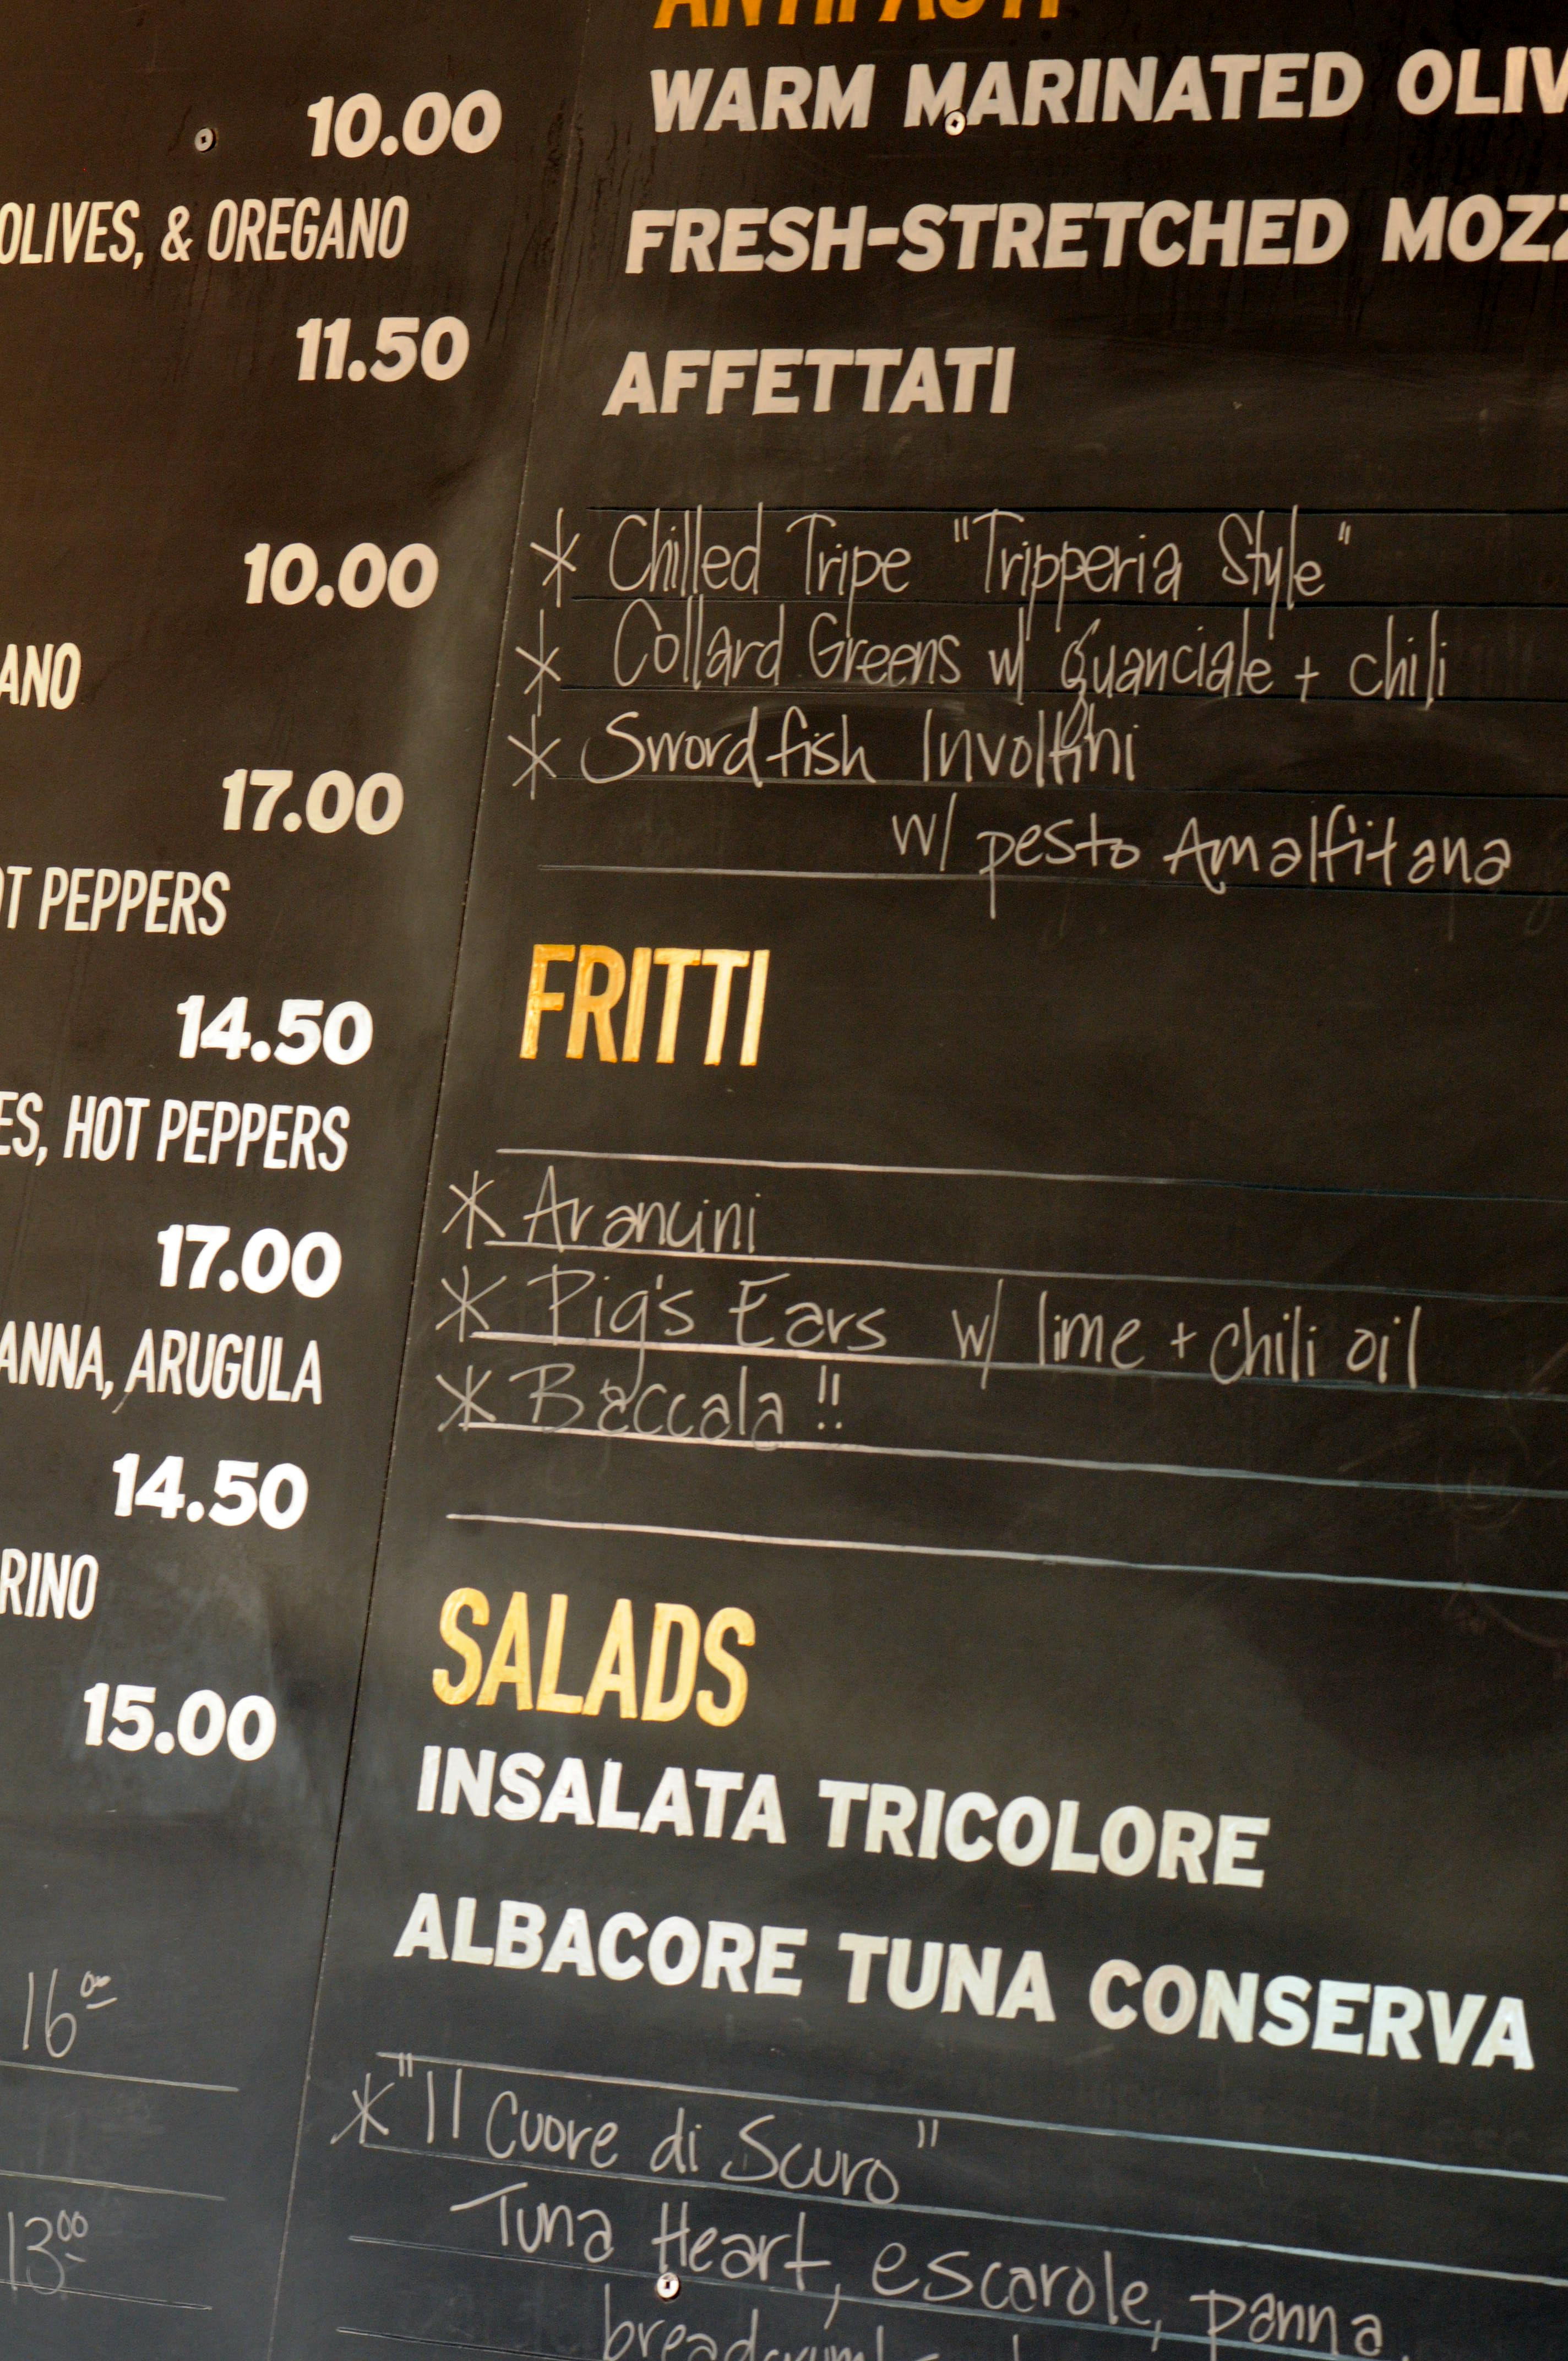 10.00
OLIVES, & OREGANO
11.50
10.00
ANO
17.00
OT PEPPERS
14.50
ES, HOT PEPPERS
17.00
ANNA, ARUGULA
14.50
RINO
15.00
16.00
13.00
ANTIPASTI
WARM MARINATED OLIV
FRESH-STRETCHED MOZZ
AFFETTATI
* Chilled Tripe "Tripperia Style"
* Collard Greens w/ guanciale + chili
* Swordfish Involtini
w/ pesto Amalfitana
FRITTI
* Arancini
* Pig's Ears w/ lime + chili oil
* Baccala!!
SALADS
INSALATA TRICOLORE
ALBACORE TUNA CONSERVA
* "Il Cuore di Scuro"
Tuna Heart, escarole, panna,